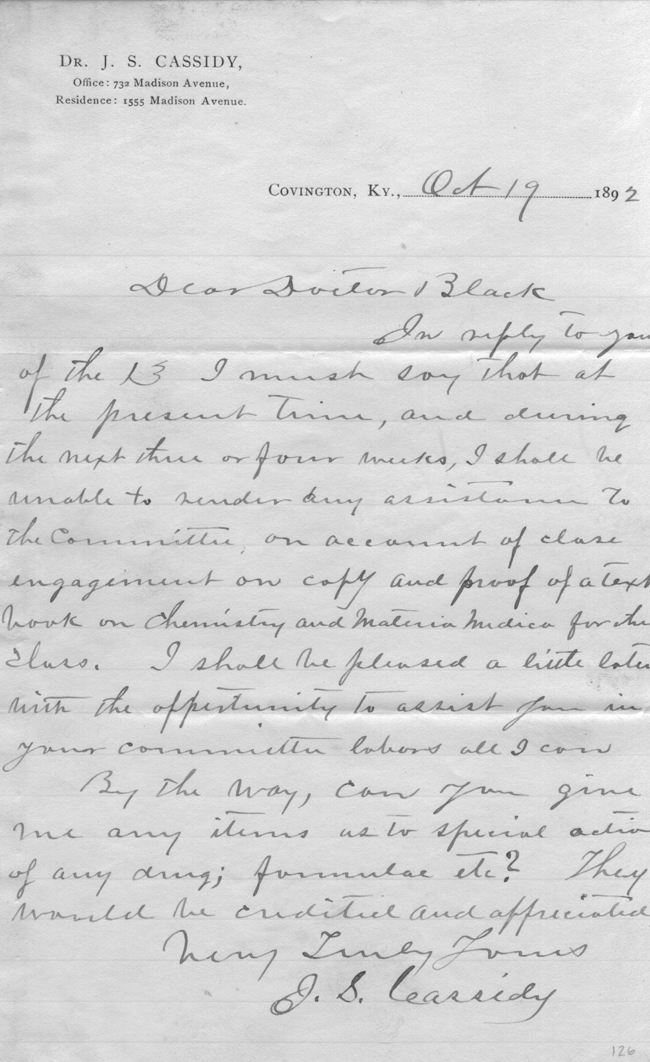 DR. J. S. CASSIDY,
Office: 732 Madison Avenue,
Residence: 1555 Madison Avenue.
COVINGTON, KY., Oct 19 1892
Dear Doctor Black
In reply to you
of the 13 I must say that at
the present time, and during
the next three or four weeks, I shall be
unable to render any assistance to
the Committee, on account of close
engagement on copy and proof of a text
book on Chemistry and Materia Medica for the
Class. I shall be pleased a little later
with the opportunity to assist you in
your committee labors all I can
By the way, can you give
me any items as to special action
of any drug; formulae etc? They
would be credited and appreciated
Very Truly Yours
J. S. Cassidy
126